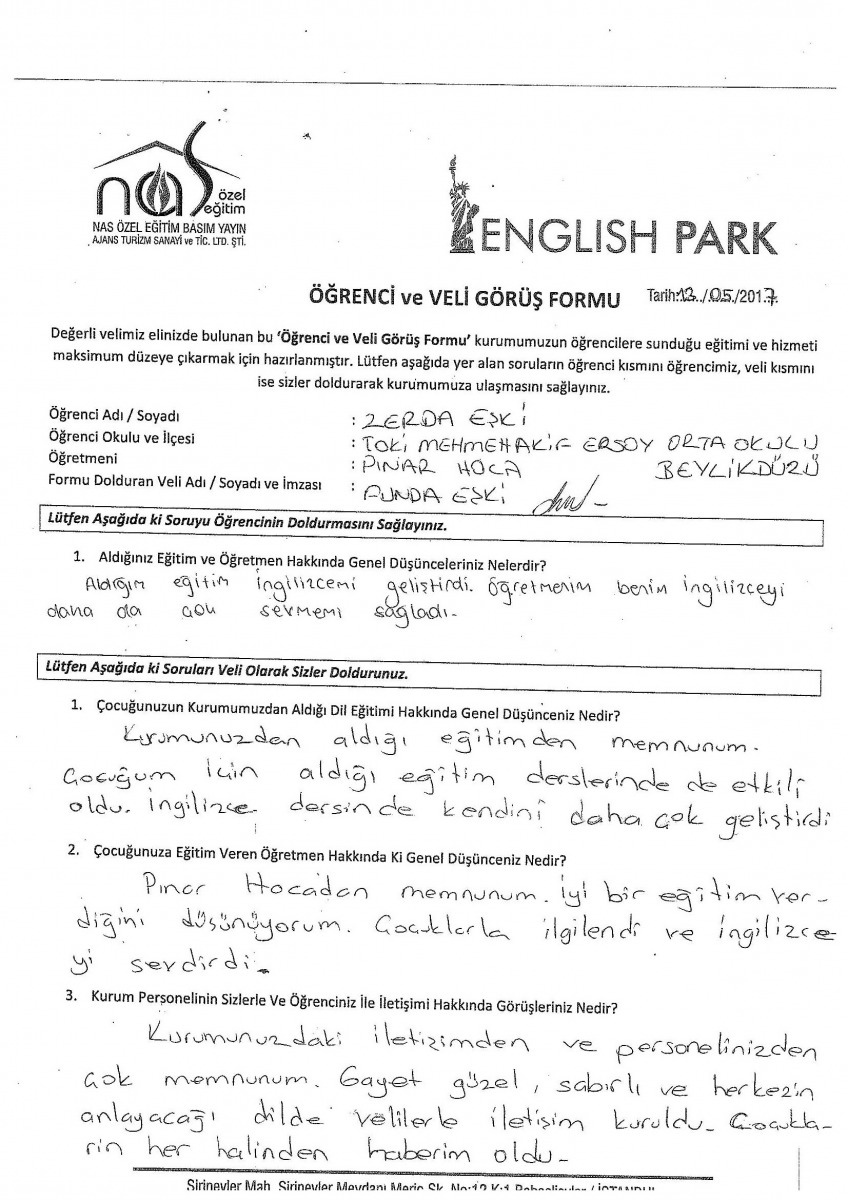 nas özel eğitim
NAS ÖZEL EĞİTİM BASIM YAYIN
AJANS TURİZM SANAYİ ve TİC. LTD. ŞTİ.
ENGLISH PARK
ÖĞRENCİ ve VELİ GÖRÜŞ FORMU Tarih:12./05./2017
Değerli velimiz elinizde bulunan bu 'Öğrenci ve Veli Görüş Formu' kurumumuzun öğrencilere sunduğu eğitimi ve hizmeti
maksimum düzeye çıkarmak için hazırlanmıştır. Lütfen aşağıda yer alan soruların öğrenci kısmını öğrencimiz, veli kısmını
ise sizler doldurarak kurumumuza ulaşmasını sağlayınız.
Öğrenci Adı / Soyadı : ZERDA EŞKİ
Öğrenci Okulu ve İlçesi : TOKİ MEHMEHAKİF ERSOY ORTA OKULU
Öğretmeni : PINAR HOCA BEYLİKDÜZÜ
Formu Dolduran Veli Adı / Soyadı ve İmzası : FUNDA EŞKİ
Lütfen Aşağıda ki Soruyu Öğrencinin Doldurmasını Sağlayınız.
1. Aldığınız Eğitim ve Öğretmen Hakkında Genel Düşünceleriniz Nelerdir?
Aldığım eğitim ingilizcemi geliştirdi. Öğretmenim benim ingilizceyi
daha da çok sevmemi sağladı.
Lütfen Aşağıda ki Soruları Veli Olarak Sizler Doldurunuz.
1. Çocuğunuzun Kurumumuzdan Aldığı Dil Eğitimi Hakkında Genel Düşünceniz Nedir?
Kurumunuzdan aldığı eğitimden memnunum.
Çocuğum için aldığı eğitim derslerinde de etkili
oldu. İngilizce dersinde kendini daha çok geliştirdi
2. Çocuğunuza Eğitim Veren Öğretmen Hakkında Ki Genel Düşünceniz Nedir?
Pınar Hocadan memnunum. İyi bir eğitim ver-
diğini düşünüyorum. Çocuklarla ilgilendi ve ingilizce-
yi sevdirdi.
3. Kurum Personelinin Sizlerle Ve Öğrenciniz İle İletişimi Hakkında Görüşleriniz Nedir?
Kurumunuzdaki iletişimden ve personelinizden
çok memnunum. Gayet güzel, sabırlı ve herkezin
anlayacağı dilde velilerle iletişim kuruldu. Çocukla-
rın her halinden haberim oldu.
Şirinevler Mah. Şirinevler Meydanı Meriç Sk. No:12 K:1 Bahçelievler / İSTANBUL